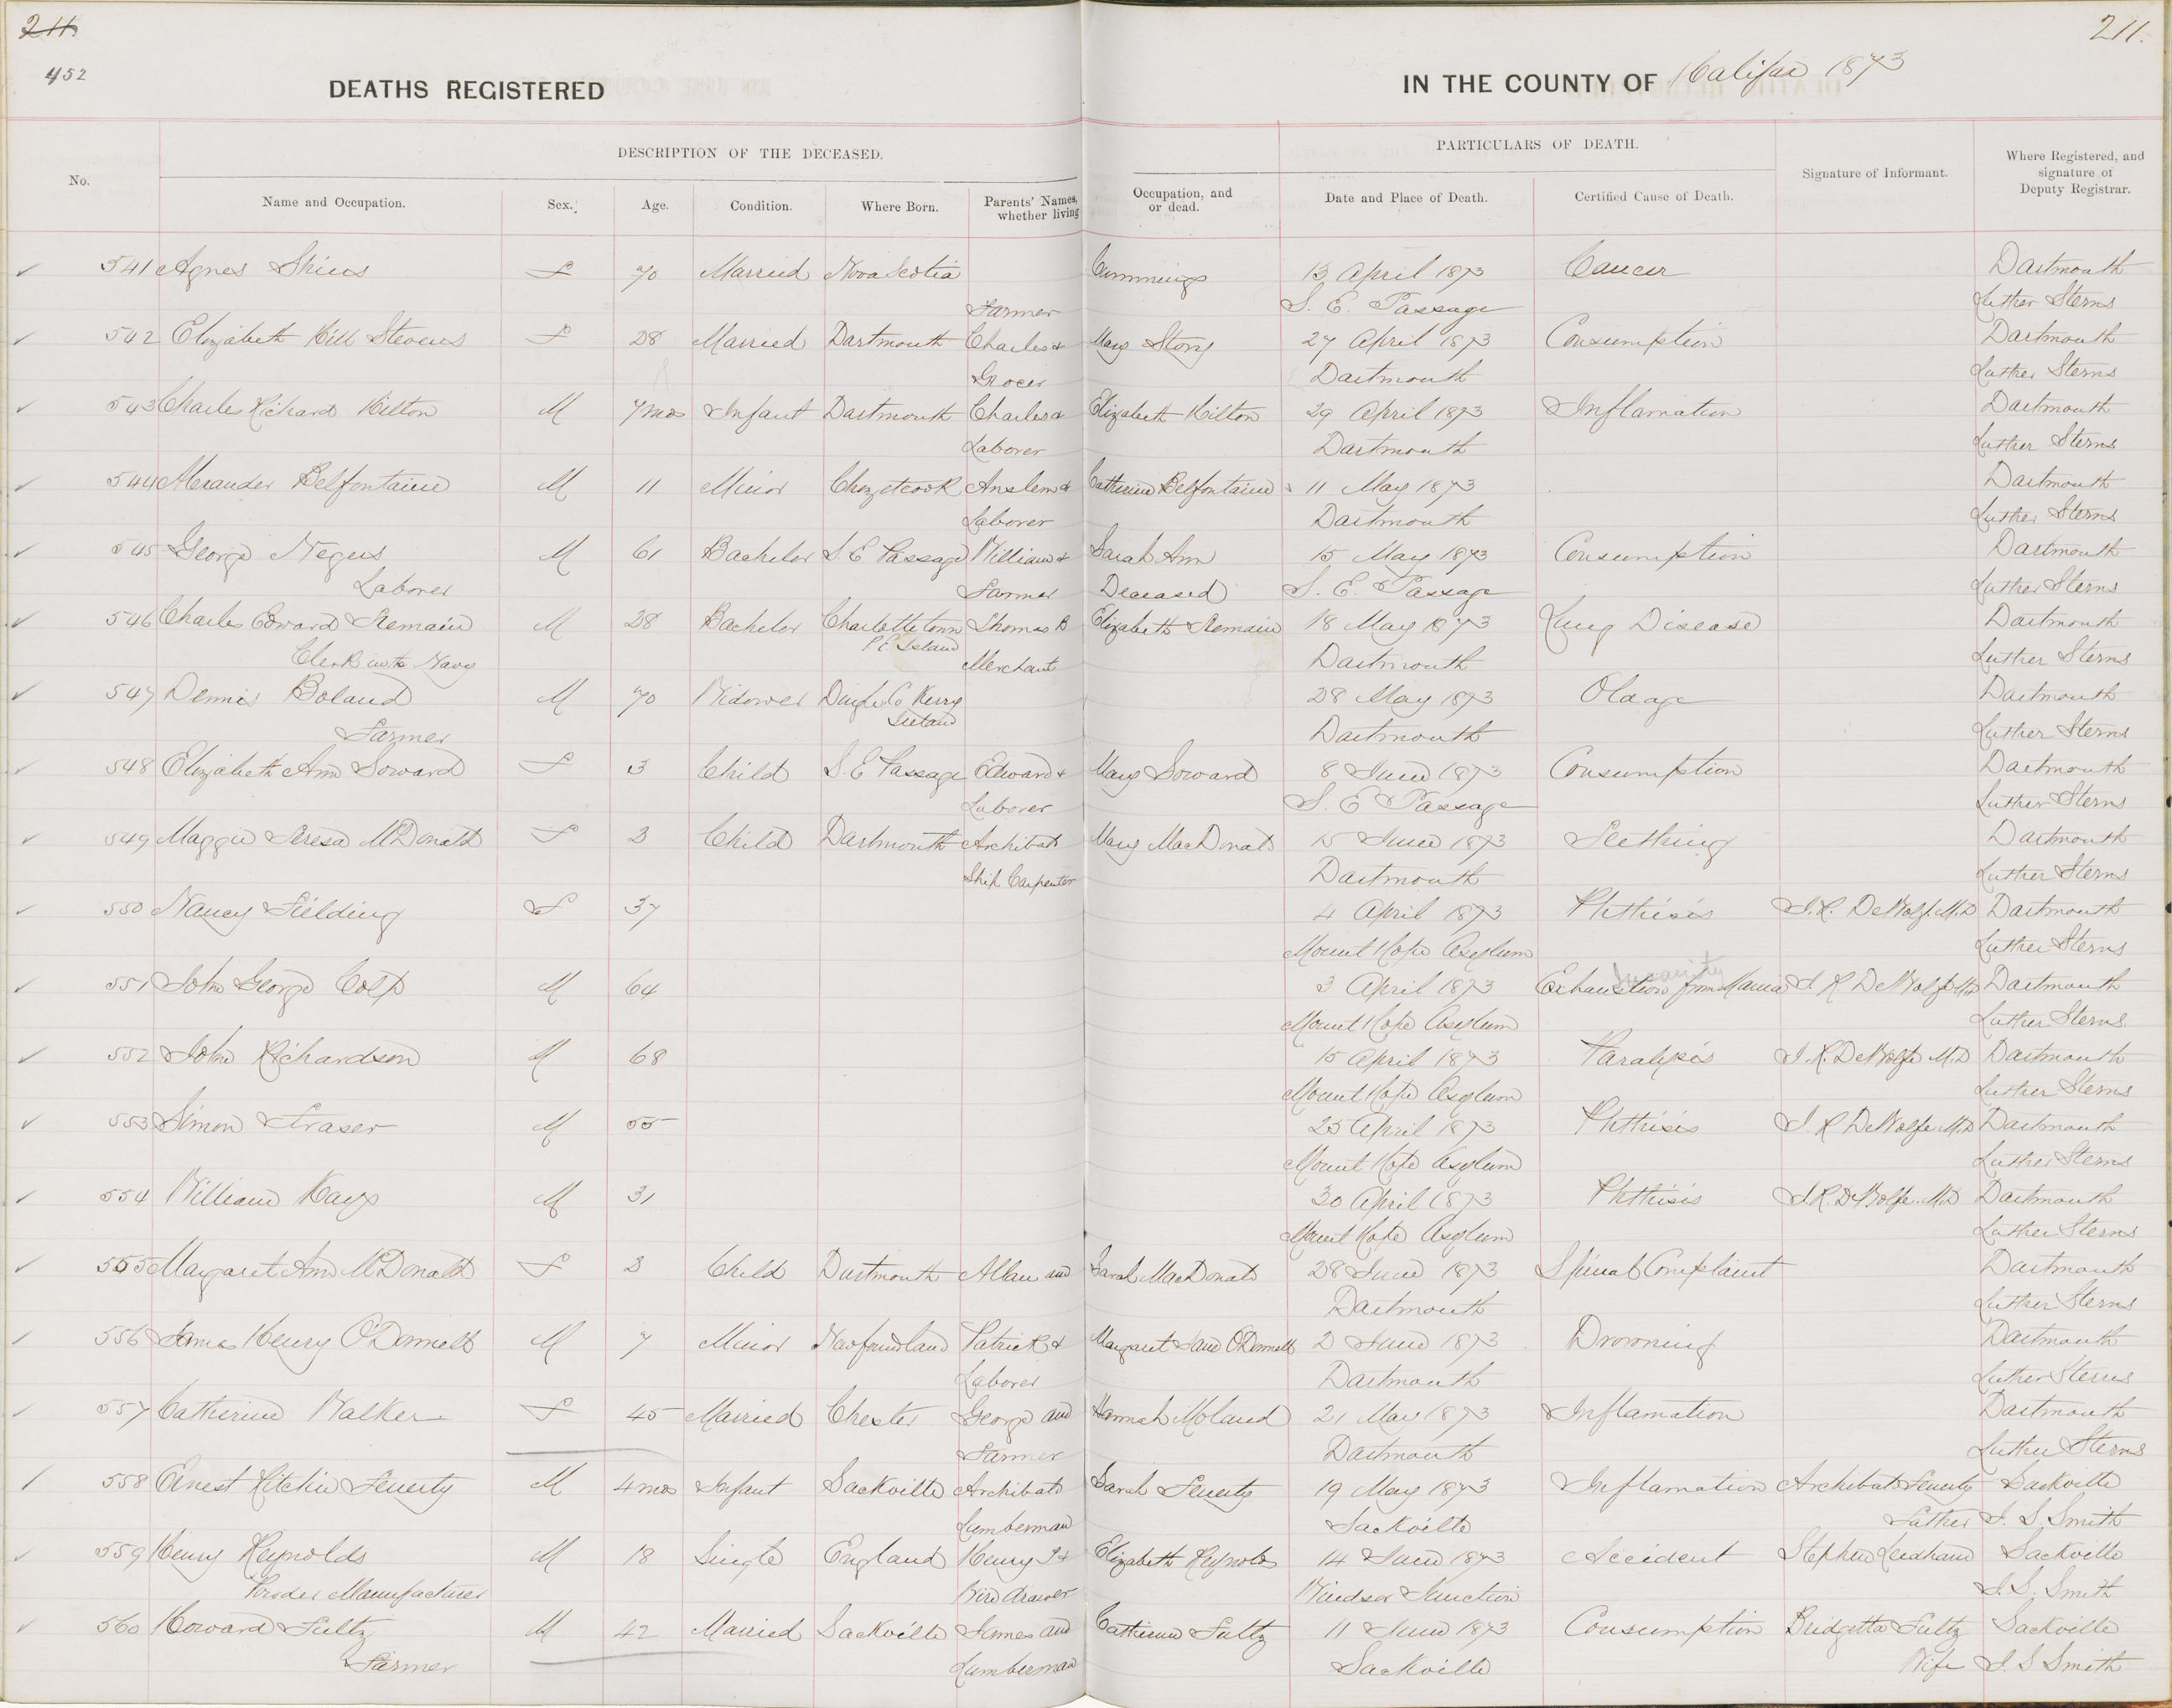 211.
211.
452
DEATHS REGISTERED IN THE COUNTY OF Halifax 1873
No.
DESCRIPTION OF THE DECEASED.
PARTICULARS OF DEATH.
Signature of Informant.
Where Registered, and signature of Deputy Registrar.
Name and Occupation. Sex. Age. Condition. Where Born. Parents' Names, Occupation, and whether living or dead. Date and Place of Death. Certified Cause of Death.
541 Agnes F 70 Married Nova Scotia Cummings 13 April 1873 Cancer Dartmouth
Farmer S. E. Passage Luther Sterns
542 Elizabeth Hill Stevens F 28 Married Dartmouth Charles & Mary Story 27 April 1873 Consumption Dartmouth
Grocer Dartmouth Luther Sterns
543 Charles Richard Hilton M 7 mos Infant Dartmouth Charles & Elizabeth Hilton 29 April 1873 Inflamation Dartmouth
Laborer Dartmouth Luther Sterns
544 Alexander Belfontaine M 11 Minor Chezetcook Anslem & Catherine Belfontaine 11 May 1873 Dartmouth
Laborer Dartmouth Luther Sterns
545 George Negus M 61 Bachelor S. E Passage William & Sarah Ann 15 May 1873 Consumption Dartmouth
Laborer Farmer Deceased S. E. Passage Luther Sterns
546 Charles Edward Tremain M 28 Bachelor Charlottetown Thomas B Elizabeth Tremain 18 May 1873 Lung Disease Dartmouth
P E Island
Clerk in the Navy Merchant Dartmouth Luther Sterns
547 Dennis Boland M 70 Widower Dingle Co Kerry 28 May 1873 Old age Dartmouth
Ireland
Farmer Dartmouth Luther Sterns
548 Elizabeth Ann Soward F 3 Child S. E Passage Edward & Mary Soward 8 June 1873 Consumption Dartmouth
Laborer S. E Passage Luther Sterns
549 Maggie Teresa McDonald F 3 Child Dartmouth Archibald Mary MacDonald 15 June 1873 Teething Dartmouth
Ship Carpenter Dartmouth Luther Sterns
550 Nancy Fielding F 37 4 April 1873 Phthisis J. R. DeWolfe M.D Dartmouth
Mount Hope Asylum Luther Sterns
Insanity
551 John George Colp M 64 3 April 1873 Exhaustion from Mania J R DeWolfe M.D Dartmouth
Mount Hope Asylum Luther Sterns
552 John Richardson M 68 15 April 1873 Paralysis J. R. DeWolfe M.D Dartmouth
Mount Hope Asylum Luther Sterns
553 Simon Fraser M 55 25 April 1873 Phthisis J. R DeWolfe M.D Dartmouth
Mount Hope Asylum Luther Sterns
554 William Kays M 31 30 April 1873 Phthisis J. R. DeWolfe M.D Dartmouth
Mount Hope Asylum Luther Sterns
555 Margaret Ann McDonald F 3 Child Dartmouth Allan and Sarah MacDonald 28 June 1873 Spinal Complaint Dartmouth
Dartmouth Luther Sterns
556 James Henry O'Donnell M 7 Minor Newfoundland Patrick & Margaret Jane O'Donnell 2 June 1873 Drowning Dartmouth
Laborer Dartmouth Luther Sterns
557 Catherine Walker F 45 Married Chester George and Hannah Moland 21 May 1873 Inflamation Dartmouth
Farmer Dartmouth Luther Sterns
558 Ernest Ritchie Fenerty M 4 mos Infant Sackville Archibald Sarah Fenerty 19 May 1873 Inflamation Archibald Fenerty Sackville
Lumberman Sackville Father J. S. Smith
559 Henry Reynolds M 18 Single England Henry J & Elizabeth Reynolds 14 June 1873 Accident Stephen Sackville
Powder Manufacturer Wire drawer Windsor Junction J. S. Smith
560 Howard Fultz M 42 Married Sackville James and Catherine Fultz 11 June 1873 Consumption Bridgetta Fultz Sackville
Farmer Lumberman Sackville Wife J. S Smith